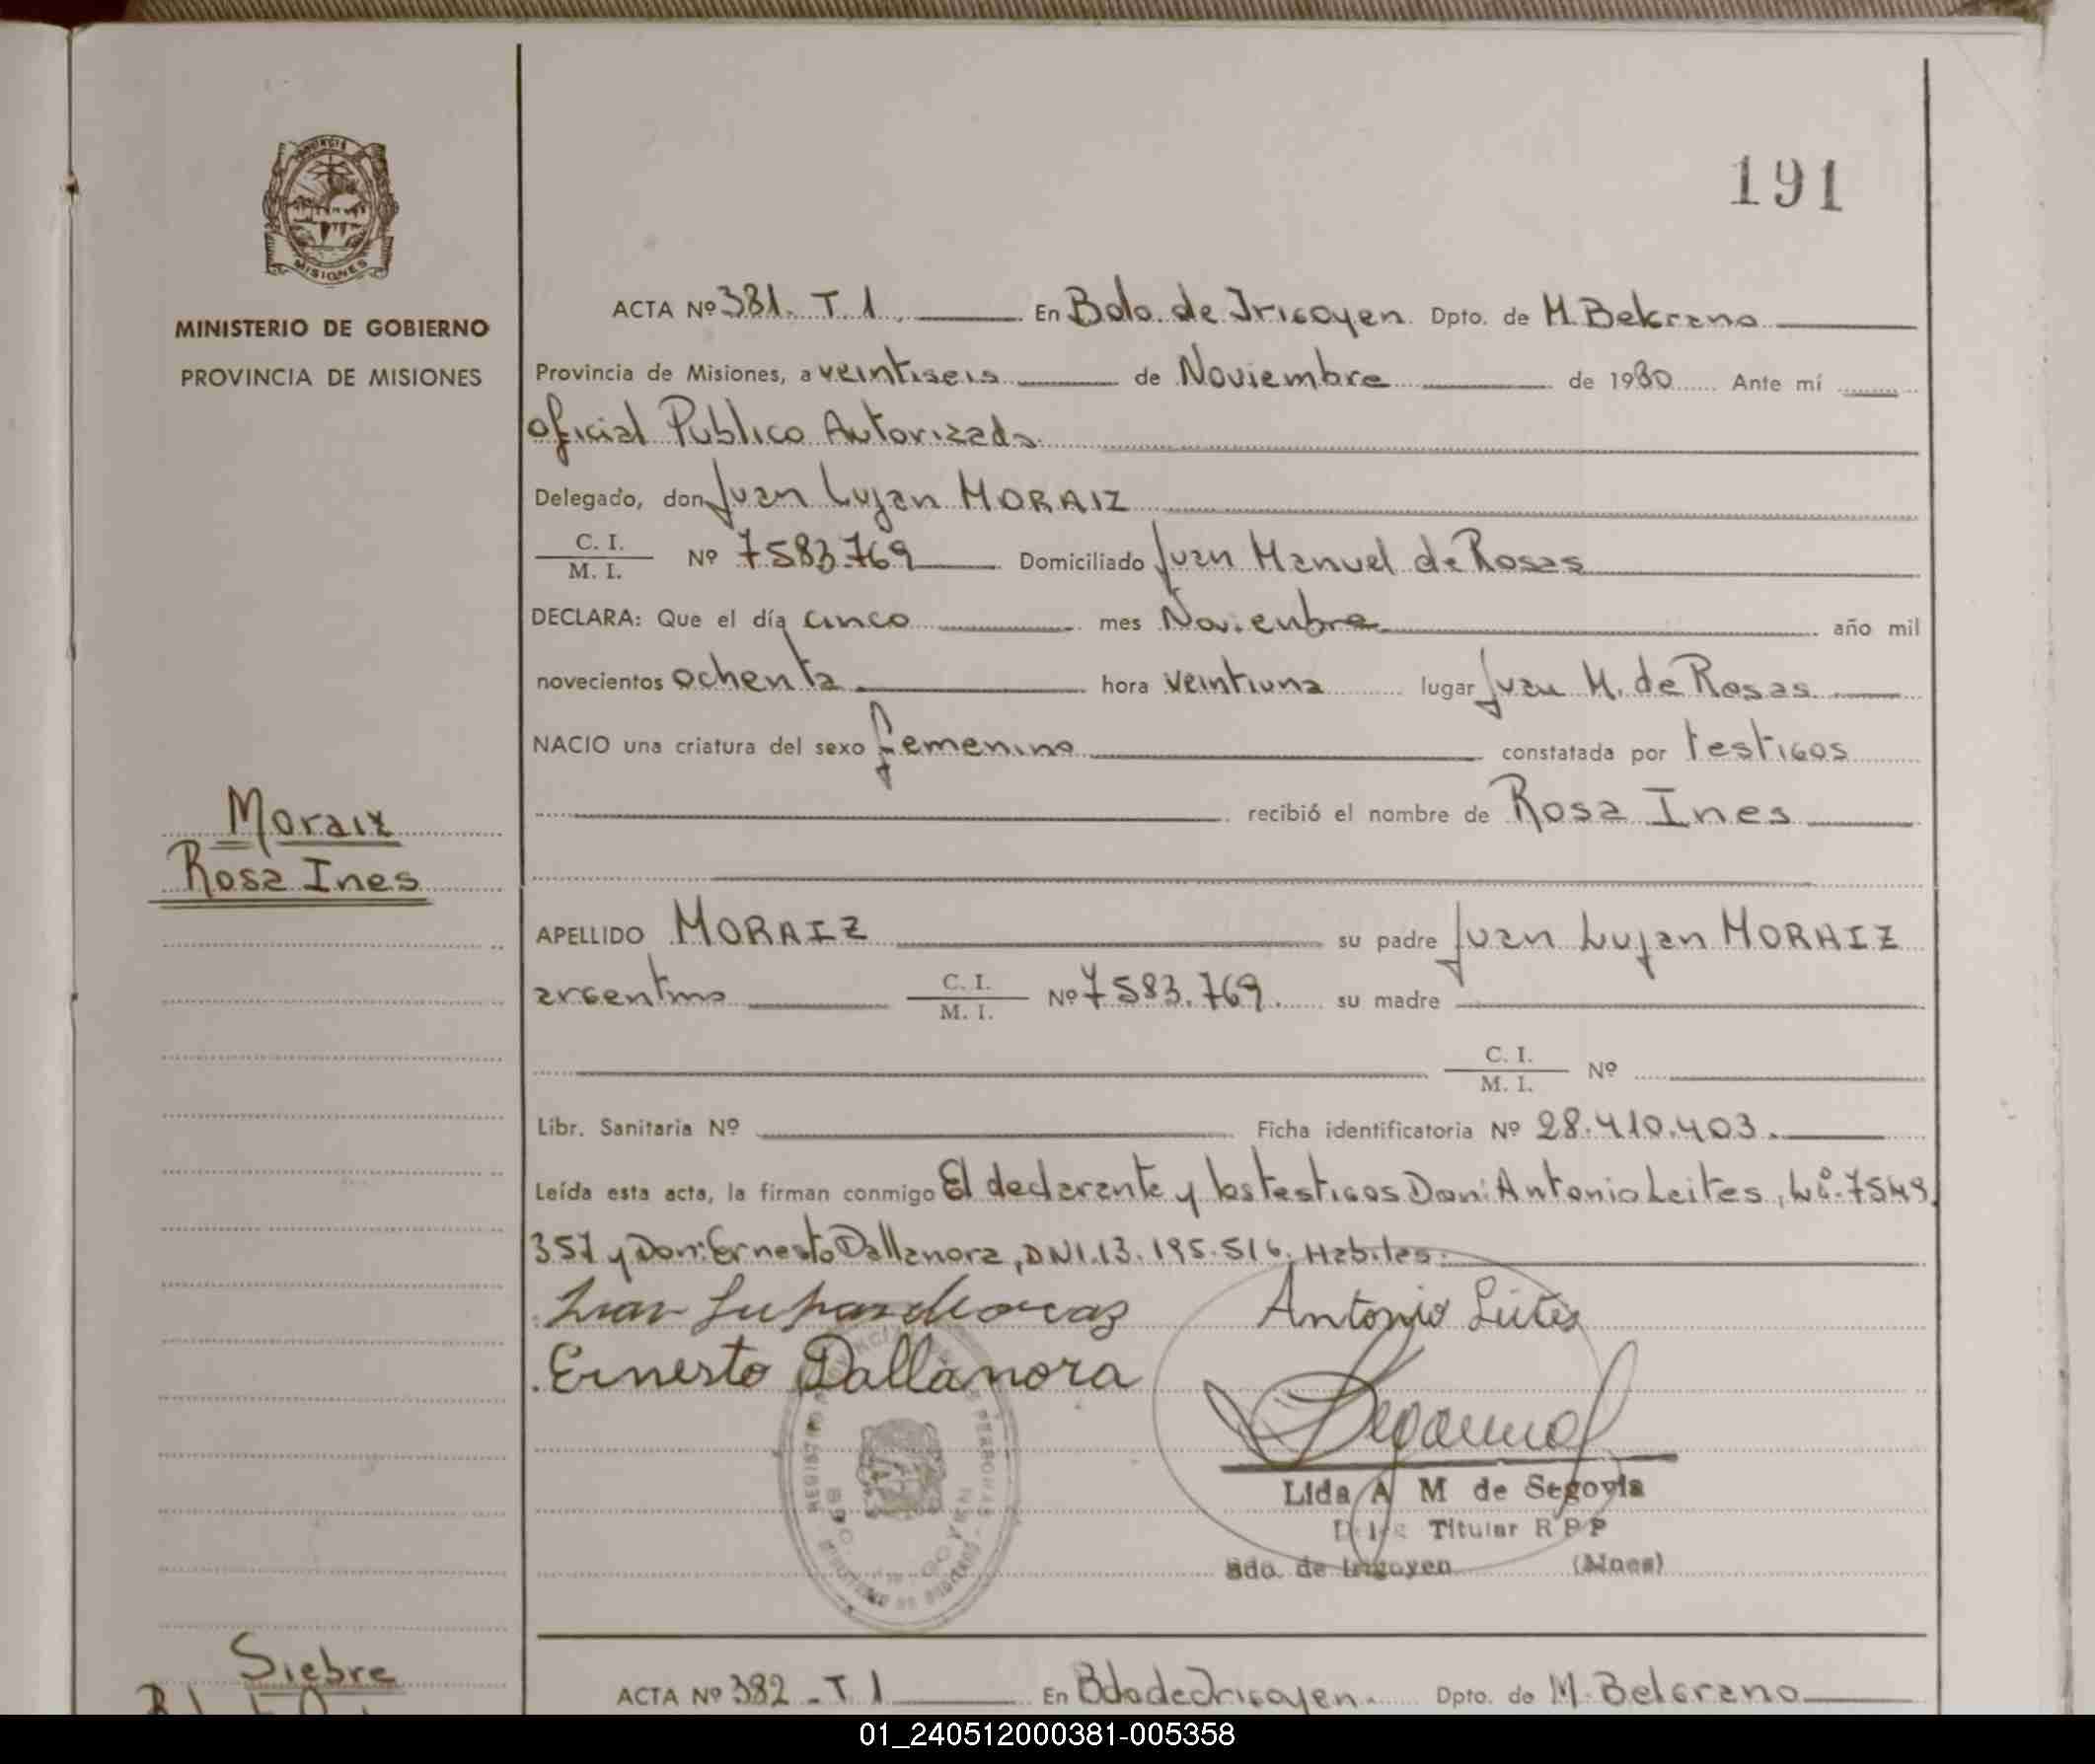 191
MINISTERIO DE GOBIERNO
PROVINCIA DE MISIONES
ACTA Nº 381. T. 1. En Bdo. de Irigoyen Dpto. de M. Belgrano
Provincia de Misiones, a veintiseis de Noviembre de 1980 Ante mí
oficial Publico Autorizado.
Delegado, don Juan Lujan MORAIZ
C. I.
M. I. Nº 7583.769 Domiciliado Juan Manuel de Rosas
DECLARA: Que el día cinco mes Noviembre año mil
novecientos ochenta hora veintiuna lugar Juan M. de Rosas
NACIO una criatura del sexo femenino constatada por testigos
recibió el nombre de Rosa Ines
Moraiz
Rosa Ines
APELLIDO MORAIZ su padre Juan Lujan MORAIZ
argentino C. I.
M. I. Nº 7583.769. su madre
C. I.
M. I. Nº
Libr. Sanitaria Nº Ficha identificatoria Nº 28.410.403.
Leída esta acta, la firman conmigo El declarante y los testigos Don: Antonio Leites,
y Don: Ernesto Dallanora, DNI. 13.195.516. Habiles.
Antonio Leites
Ernesto Dallanora
Lida A M de Segovia
Deleg Titular R P P
Bdo. de Irigoyen (Mnes)
Siebre
ACTA Nº 382 - T 1 En Bdo de Irigoyen. Dpto. de M. Belgrano
01_240512000381-005358